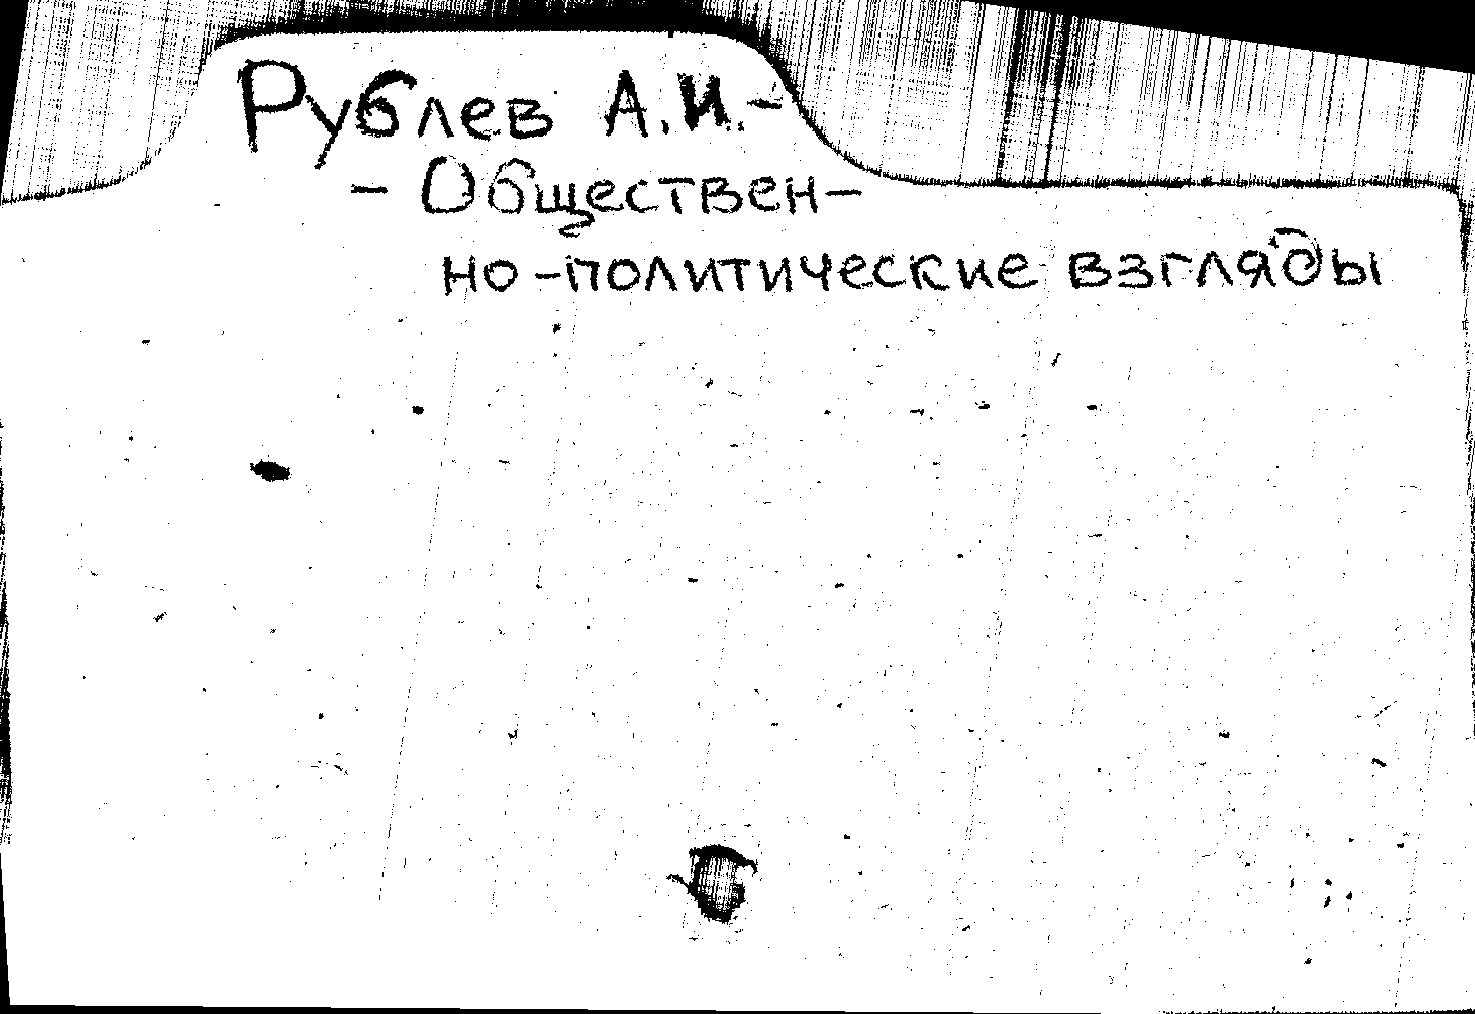 Рублев А.И.-
- Обществен-
но-политические взгляды